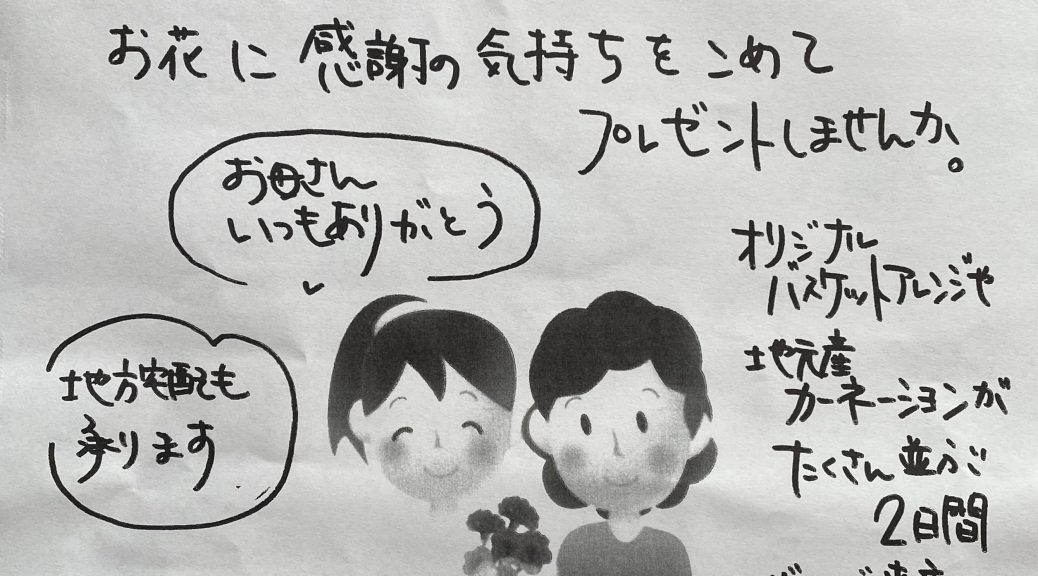 お花に感謝の気持ちをこめて
プレゼントしませんか。
お母さん
いつもありがとう
地方宅配も
承ります
オリジナル
バスケットアレンジや
地元産
カーネーションが
たくさん並ぶ
2日間